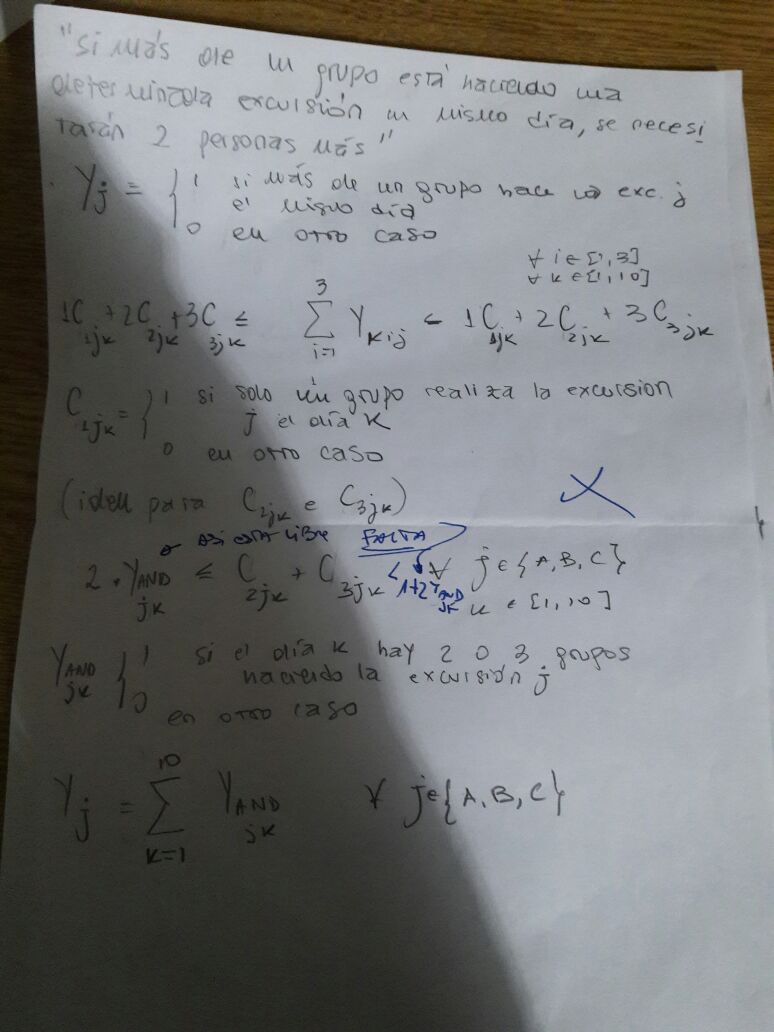 "si más de un grupo está haciendo una
determinada excursión un mismo día, se necesi
tarán 2 personas más"
Yj = { 1 si más de un grupo hace la exc. j
el mismo día
0 en otro caso
∀ i ∈ [1,3]
∀ k ∈ [1,10]
1C1jk + 2C2jk + 3C3jk ≤ 3 Σ i=1 Ykij ≤ 1C1jk + 2C2jk + 3C3jk
C1jk = { 1 si solo un grupo realiza la excursion
j el día k
0 en otro caso
(idem para C2jk e C3jk)
asi esta libre FALTA
2 · YAND jk ≤ C2jk + C3jk ≤ 1+2YAND jk ∀ j ∈ {A, B, C}
k ∈ [1,10]
YAND jk { 1 si el día k hay 2 o 3 grupos
haciendo la excursión j
0
en otro caso
Yj = 10 Σ k=1 YAND jk ∀ j∈{A, B, C}